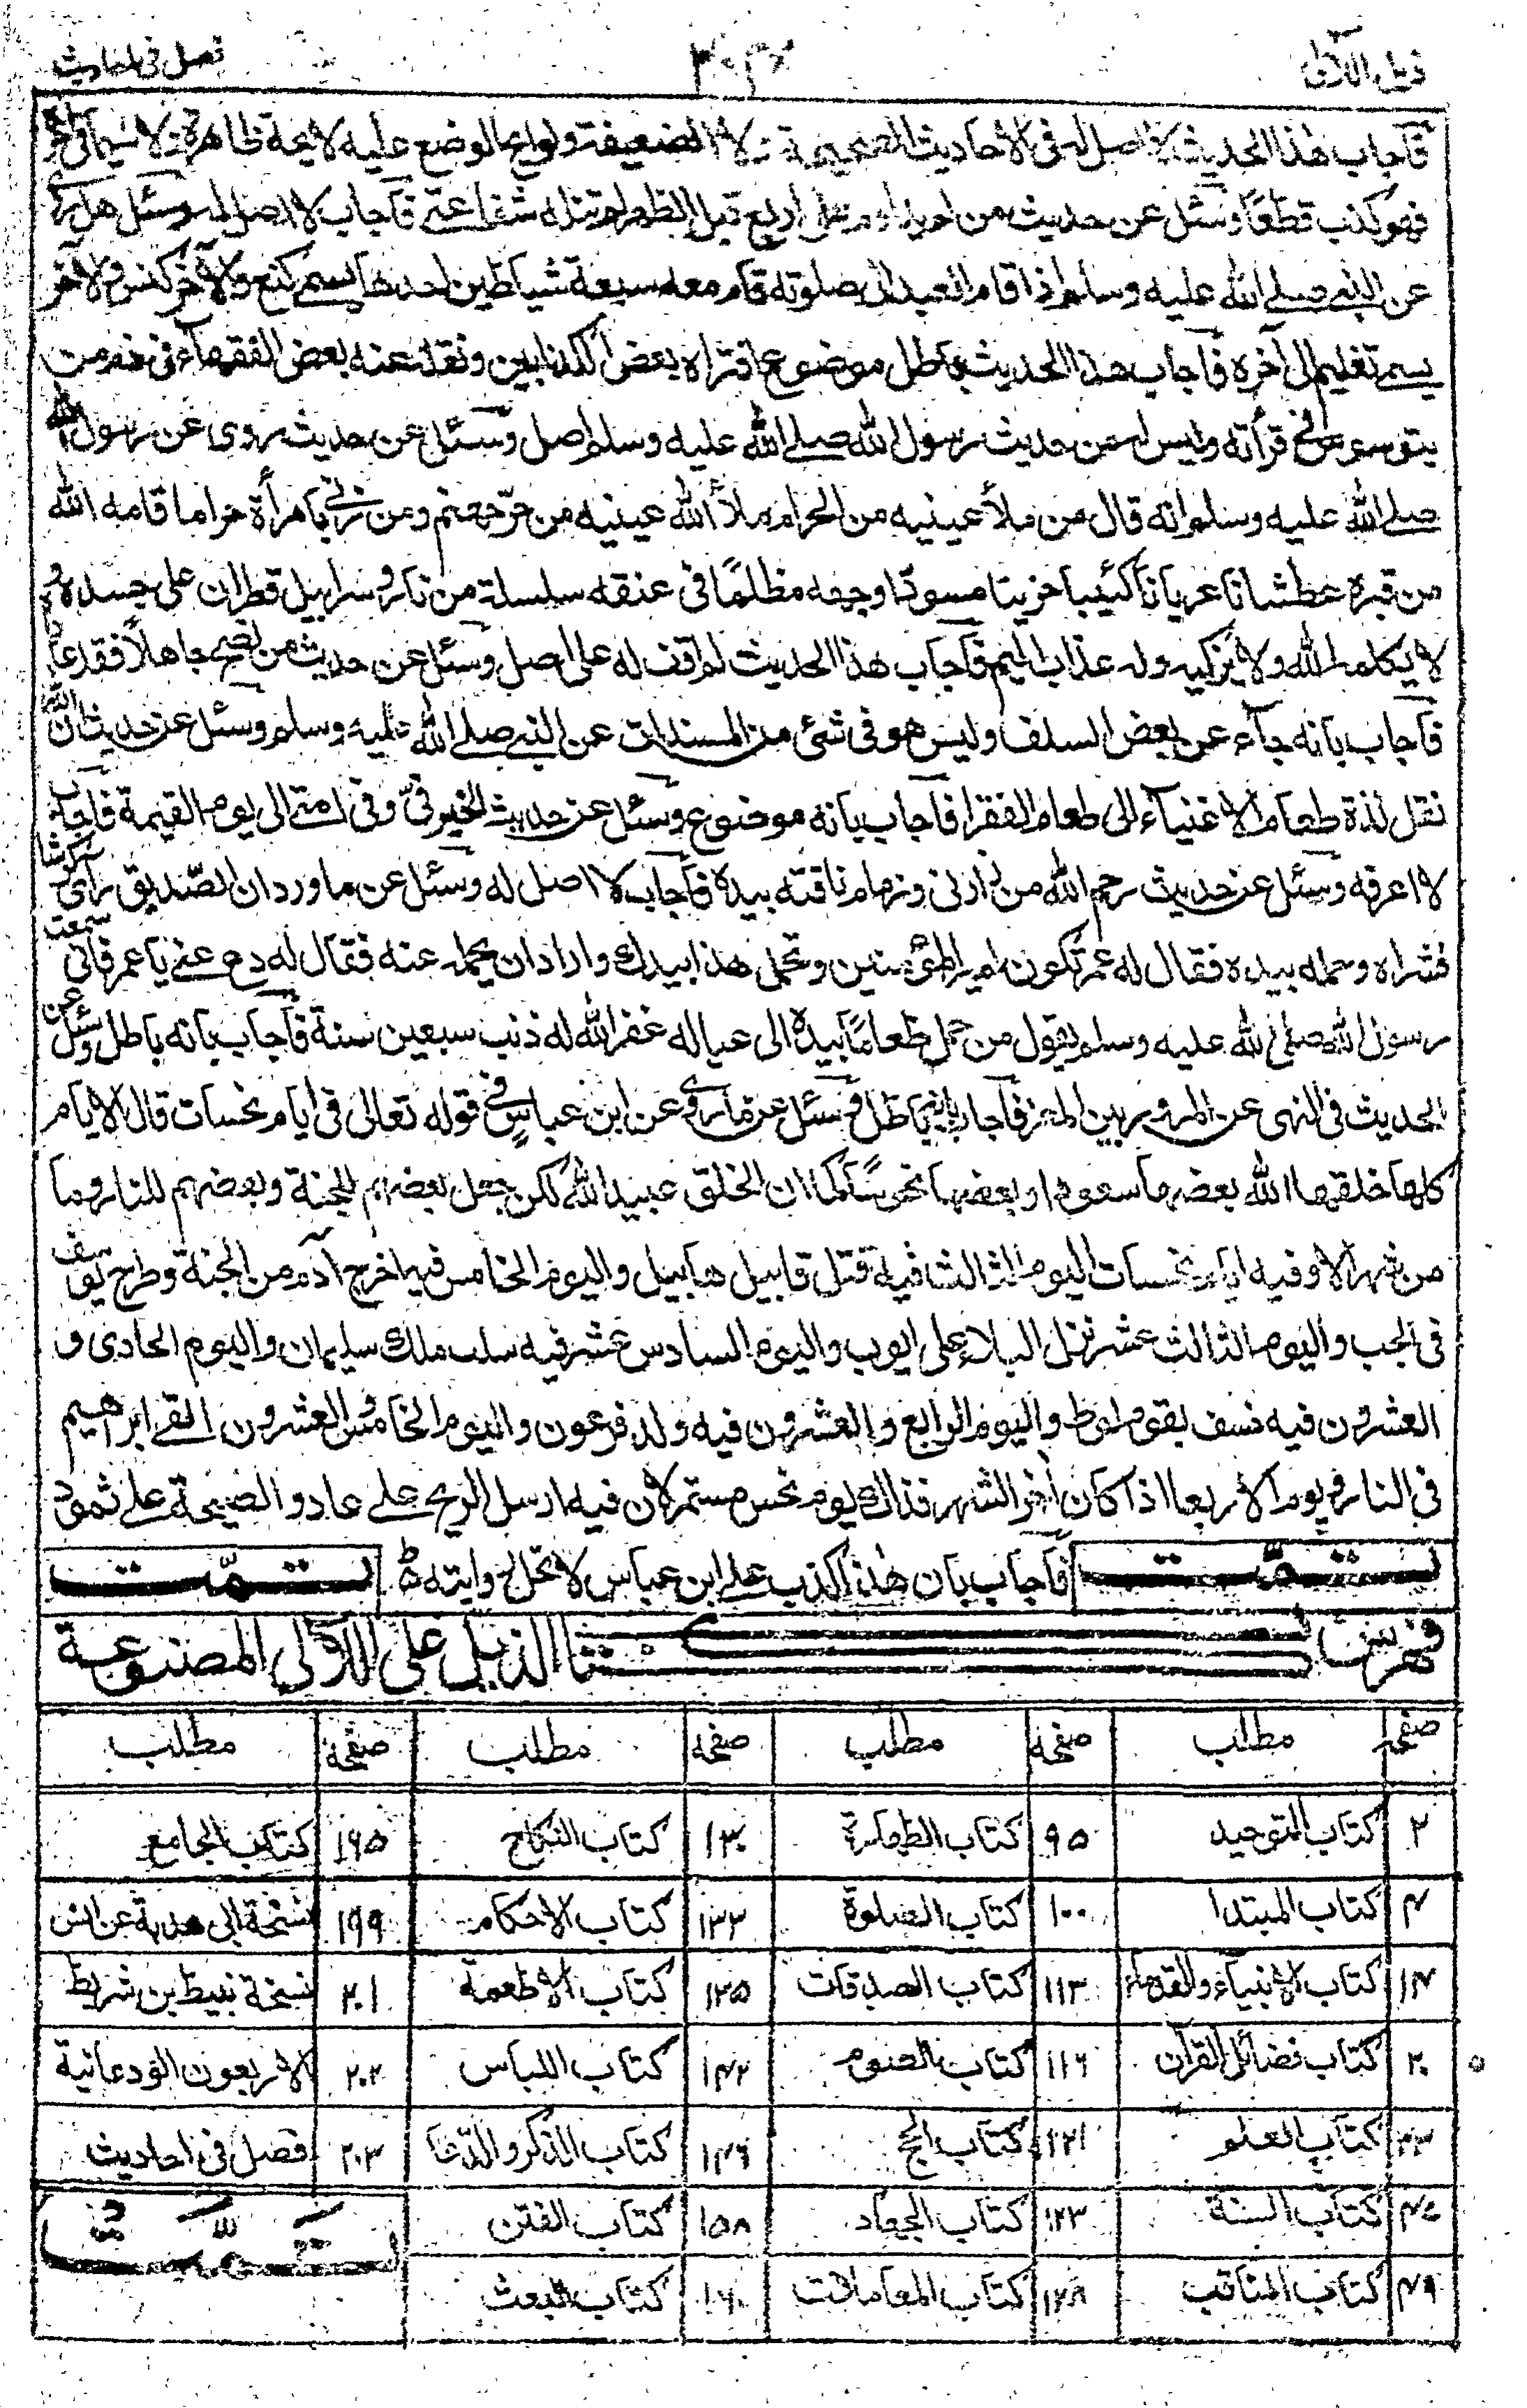 ذيل اللآلى
فصل فى احاديث
فآجاب هذا الحديث لا اصل له فى الاحاديث الصحيحة ولا الضعيفة ولوايح الوضع عليه لايحة ظاهرة لا سيما
فهو كذب قطعًا وسئل عن حديث من لم يداوم على اربع قبل الظهر لم تنله شفاعتى فآجاب لا اصل له وسئل هل
عن النبى صلى الله عليه وسلم اذا قام العبد الى صلوته قام معه سبعة شياطين احدها يسمى كنع والآخر كنس والآخر
يسمى الى آخره فآجاب هذا الحديث باطل موضوع افتراه بعض الكذابين ونقلت عنه بعض الفقهاء فى ذم من
يتوسوس فى قرأته وليس له من حديث رسول الله صلى الله عليه وسلم اصل وسئل عن حديث يروى عن رسول الله
صلى الله عليه وسلم انه قال من ملأ عينيه من الحرام ملأ الله عينيه من حر جهنم ومن زنى بامرأة حراما اقامه الله
من قبره عطشانا عريانا كئيبا حزينا مسودًا وجهه مظلمًا فى عنقه سلسلة من نار وسرابيل قطران على جسده و
لا يكلمه الله ولا يزكيه وله عذاب اليم فآجاب هذا الحديث لم اقف له على اصل وسئل عن حديث من نصح جاهلاً فقد عاداه
فآجاب بانه جآء عن بعض السلف وليس هو فى شئ من المسندات عن النبى صلى الله عليه وسلم وسئل عن حديث ان الله
نقل لذة طعام الاغنيآء الى طعام الفقرا فآجاب بانه موضوع وسئل عن حديث الخير فىّ وفى امتى الى يوم القيمة فآجاب
لا اعرفه وسئل عن حديث رحم الله من زارنى وزمام ناقته بيده فآجاب لا اصل له وسئل عن ما ورد ان الصديق رأى كرشا
فشراه وحمله بيده فقال له عمر تكون امير المؤمنين وتحمل هذا بيدك واراد ان يحمله عنه فقال له دع عنى يا عمر فانى سمعت
رسول الله صلى الله عليه وسلم يقول من حمل طعامًا بيده الى عياله غفر الله له ذنب سبعين سنة فآجاب بانه باطل وسئل عن
الحديث فى النهى عن المرور بين المعز فآجاب بانه باطل وسئل عن ما روى عن ابن عباس فى قوله تعالى فى ايام نحسات قال الايام
كلها خلقها الله بعضها سعودا وبعضها نحوسًا كما ان الخلق عبيد الله لكن جعل بعضهم للجنة وبعضهم للنار وما
من شهر الا وفيه ايام نحسات اليوم الثالث فيه قتل قابيل هابيل واليوم الخامس فيه اخرج آدم من الجنة وطرح يوسف
فى الجب واليوم الثالث عشر نزل البلاء على ايوب واليوم السادس عشر فيه سلب ملك سليمان واليوم الحادى و
العشرون فيه خسف بقوم لوط واليوم الرابع والعشرون فيه ولد فرعون واليوم الخامس والعشرون القى ابراهيم
فى النار ويوم الاربعا اذا كان آخر الشهر فذاك يوم نحس مستمر لان فيه ارسل الريح على عاد والصيحة على ثمود
تمّت فآجاب بان هذا كذب على ابن عباس لا تحل روايته تمّت
فهرس كتاب الذيل على اللآلى المصنوعة
صفحه مطلب صفحه مطلب صفحه مطلب صفحه مطلب
۲ كتاب التوحيد ۹۵ كتاب الطهارة ۱۳۰ كتاب النكاح ۱۶۵ كتاب الجامع
۴ كتاب المبتدا ۱۰۰ كتاب الصلوة ۱۳۳ كتاب الاحكام ۱۹۹ نسخة ابى هدبة عن انس
۱۴ كتاب الانبياء والقدماء ۱۱۳ كتاب الصدقات ۱۳۵ كتاب الاطعمة ۲۰۱ نسخة نبيط بن شريط
۲۰ كتاب فضائل القرآن ۱۱۶ كتاب الصوم ۱۴۲ كتاب اللباس ۲۰۲ الاربعون الودعانية
۳۳ كتاب العلم ۱۲۱ كتاب الحج ۱۴۶ كتاب الذكر والدعا ۲۰۳ فصل فى احاديث
كتاب السنة ۱۲۳ كتاب الجهاد ۱۵۸ كتاب الفتن تمّت
۴۹ كتاب المناقب ۱۲۸ كتاب المعاملات ۱۶۰ كتاب البعث